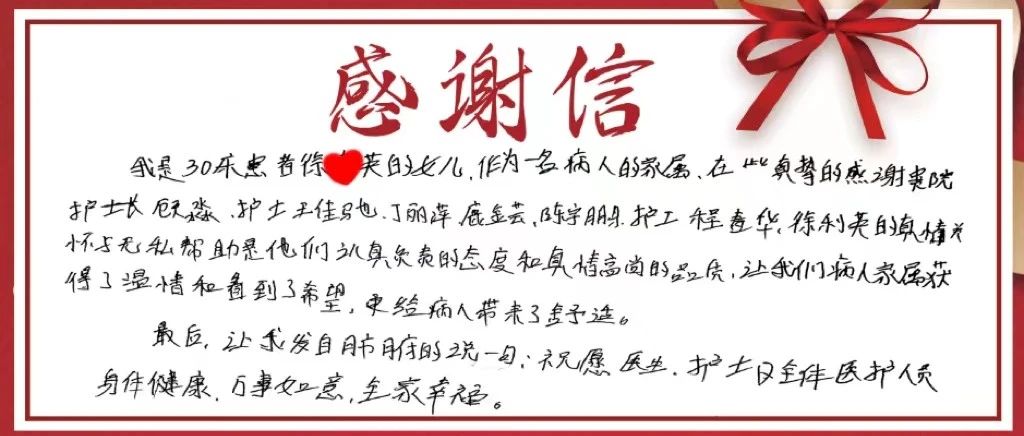 感谢信
我是30床患者徐 英的女儿,作为一名病人的家属,在此真挚的感谢贵院
护士长顾淼、护士王佳驰、丁丽萍、陈宇鹏、护工程连华、徐利英的真情关
怀与无私帮助是他们认真负责的态度和真情高尚的品质,让我们病人家属获
得了温情和看到了希望,更给病人带来了 。
最后,让我发自肺腑的说一句:祝愿医生、护士及全体医护人员
身体健康,万事如意,全家幸福。